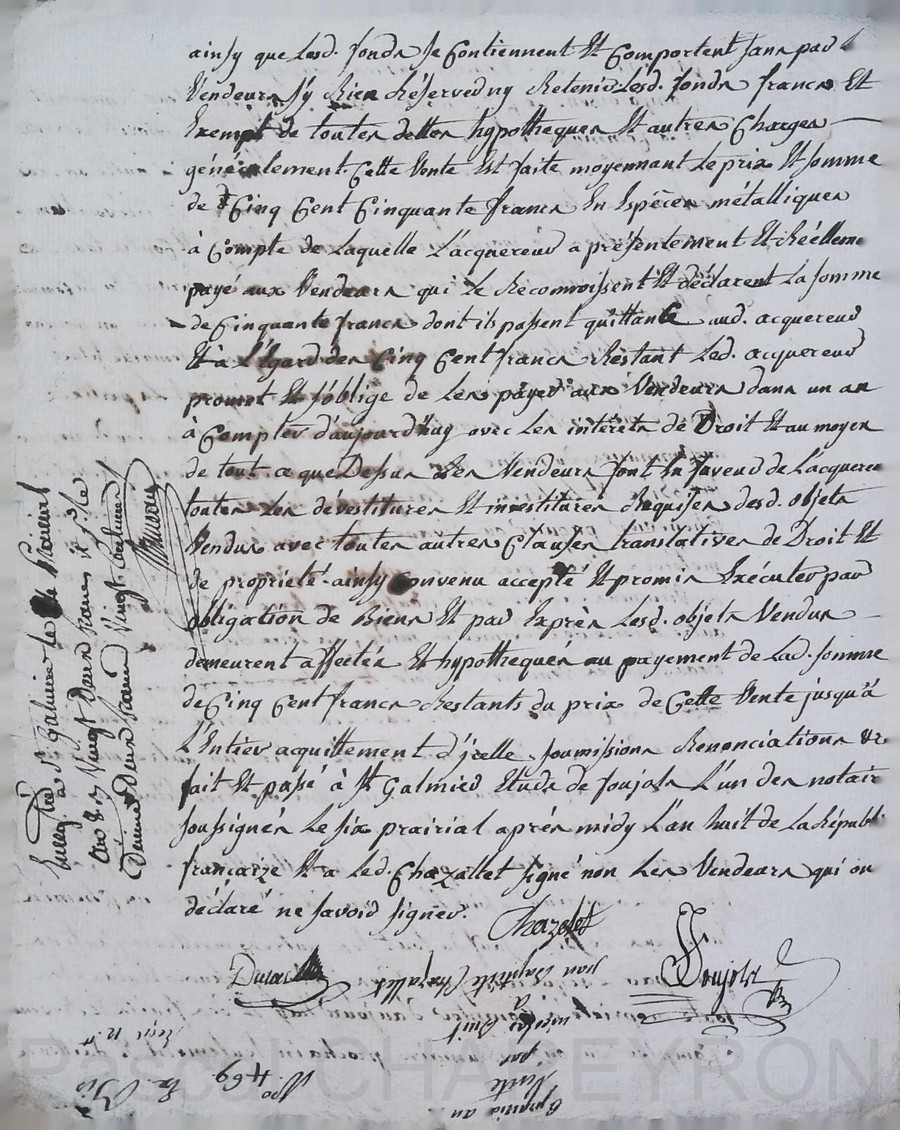 ainsy que lesd. fonds se Contiennent Et Comportent sans par l
Vendeurs sy Rien Réserver ny Retenir Lesd. fonds francs Et
Exempt de toutes dettes hypotheques Et autres Charges
généralement. Cette Vente Est faite moyennant Le prix Et somme
de Cinq Cent Cinquante francs En Espèces métalliques
à Compte de Laquelle L'acquereur a présentement Et Réelleme
payé aux Vendeurs qui Le Reconnoissent Et déclarent La somme
de Cinquante francs dont ils passent quittance aud. acquereur
Et à L'Egard des Cinq Cent francs Restant Led. acquereur
promet Et s'oblige de Les payer aux Vendeurs dans un an
à Compter d'aujourd'huy avec Les intérêts de Droit Et au moyen
de tout ce que Dessus Les Vendeurs font En faveur de L'acquere
toutes Les dévestitures Et investitures Requises desd. objets
Vendus avec toutes autres Clauses translatives de Droit Et
de propriété. ainsy Convenu accepté Et promis Exécuter par
obligation de Biens Et par Exprès Lesd. objets Vendus
demeurent affectés Et hypothequés au payement de Lad. somme
de Cinq Cent francs Restants du prix de Cette Vente jusqu'à
L'Entier acquittement d'jcelle. soumissions Renonciations &c
fait Et passé à St Galmier Etude de Soujols L'un des notair
soussignés Le six prairial après midy L'an huit de La Républi
françaize Et a Led. Chazallet signé non Les Vendeurs qui on
déclaré ne savoir signer.
Chazalet
Soujols
à St Galmier le
vingt Deux francs
jean Baptiste Chazallet
à
par
Vente
No 469